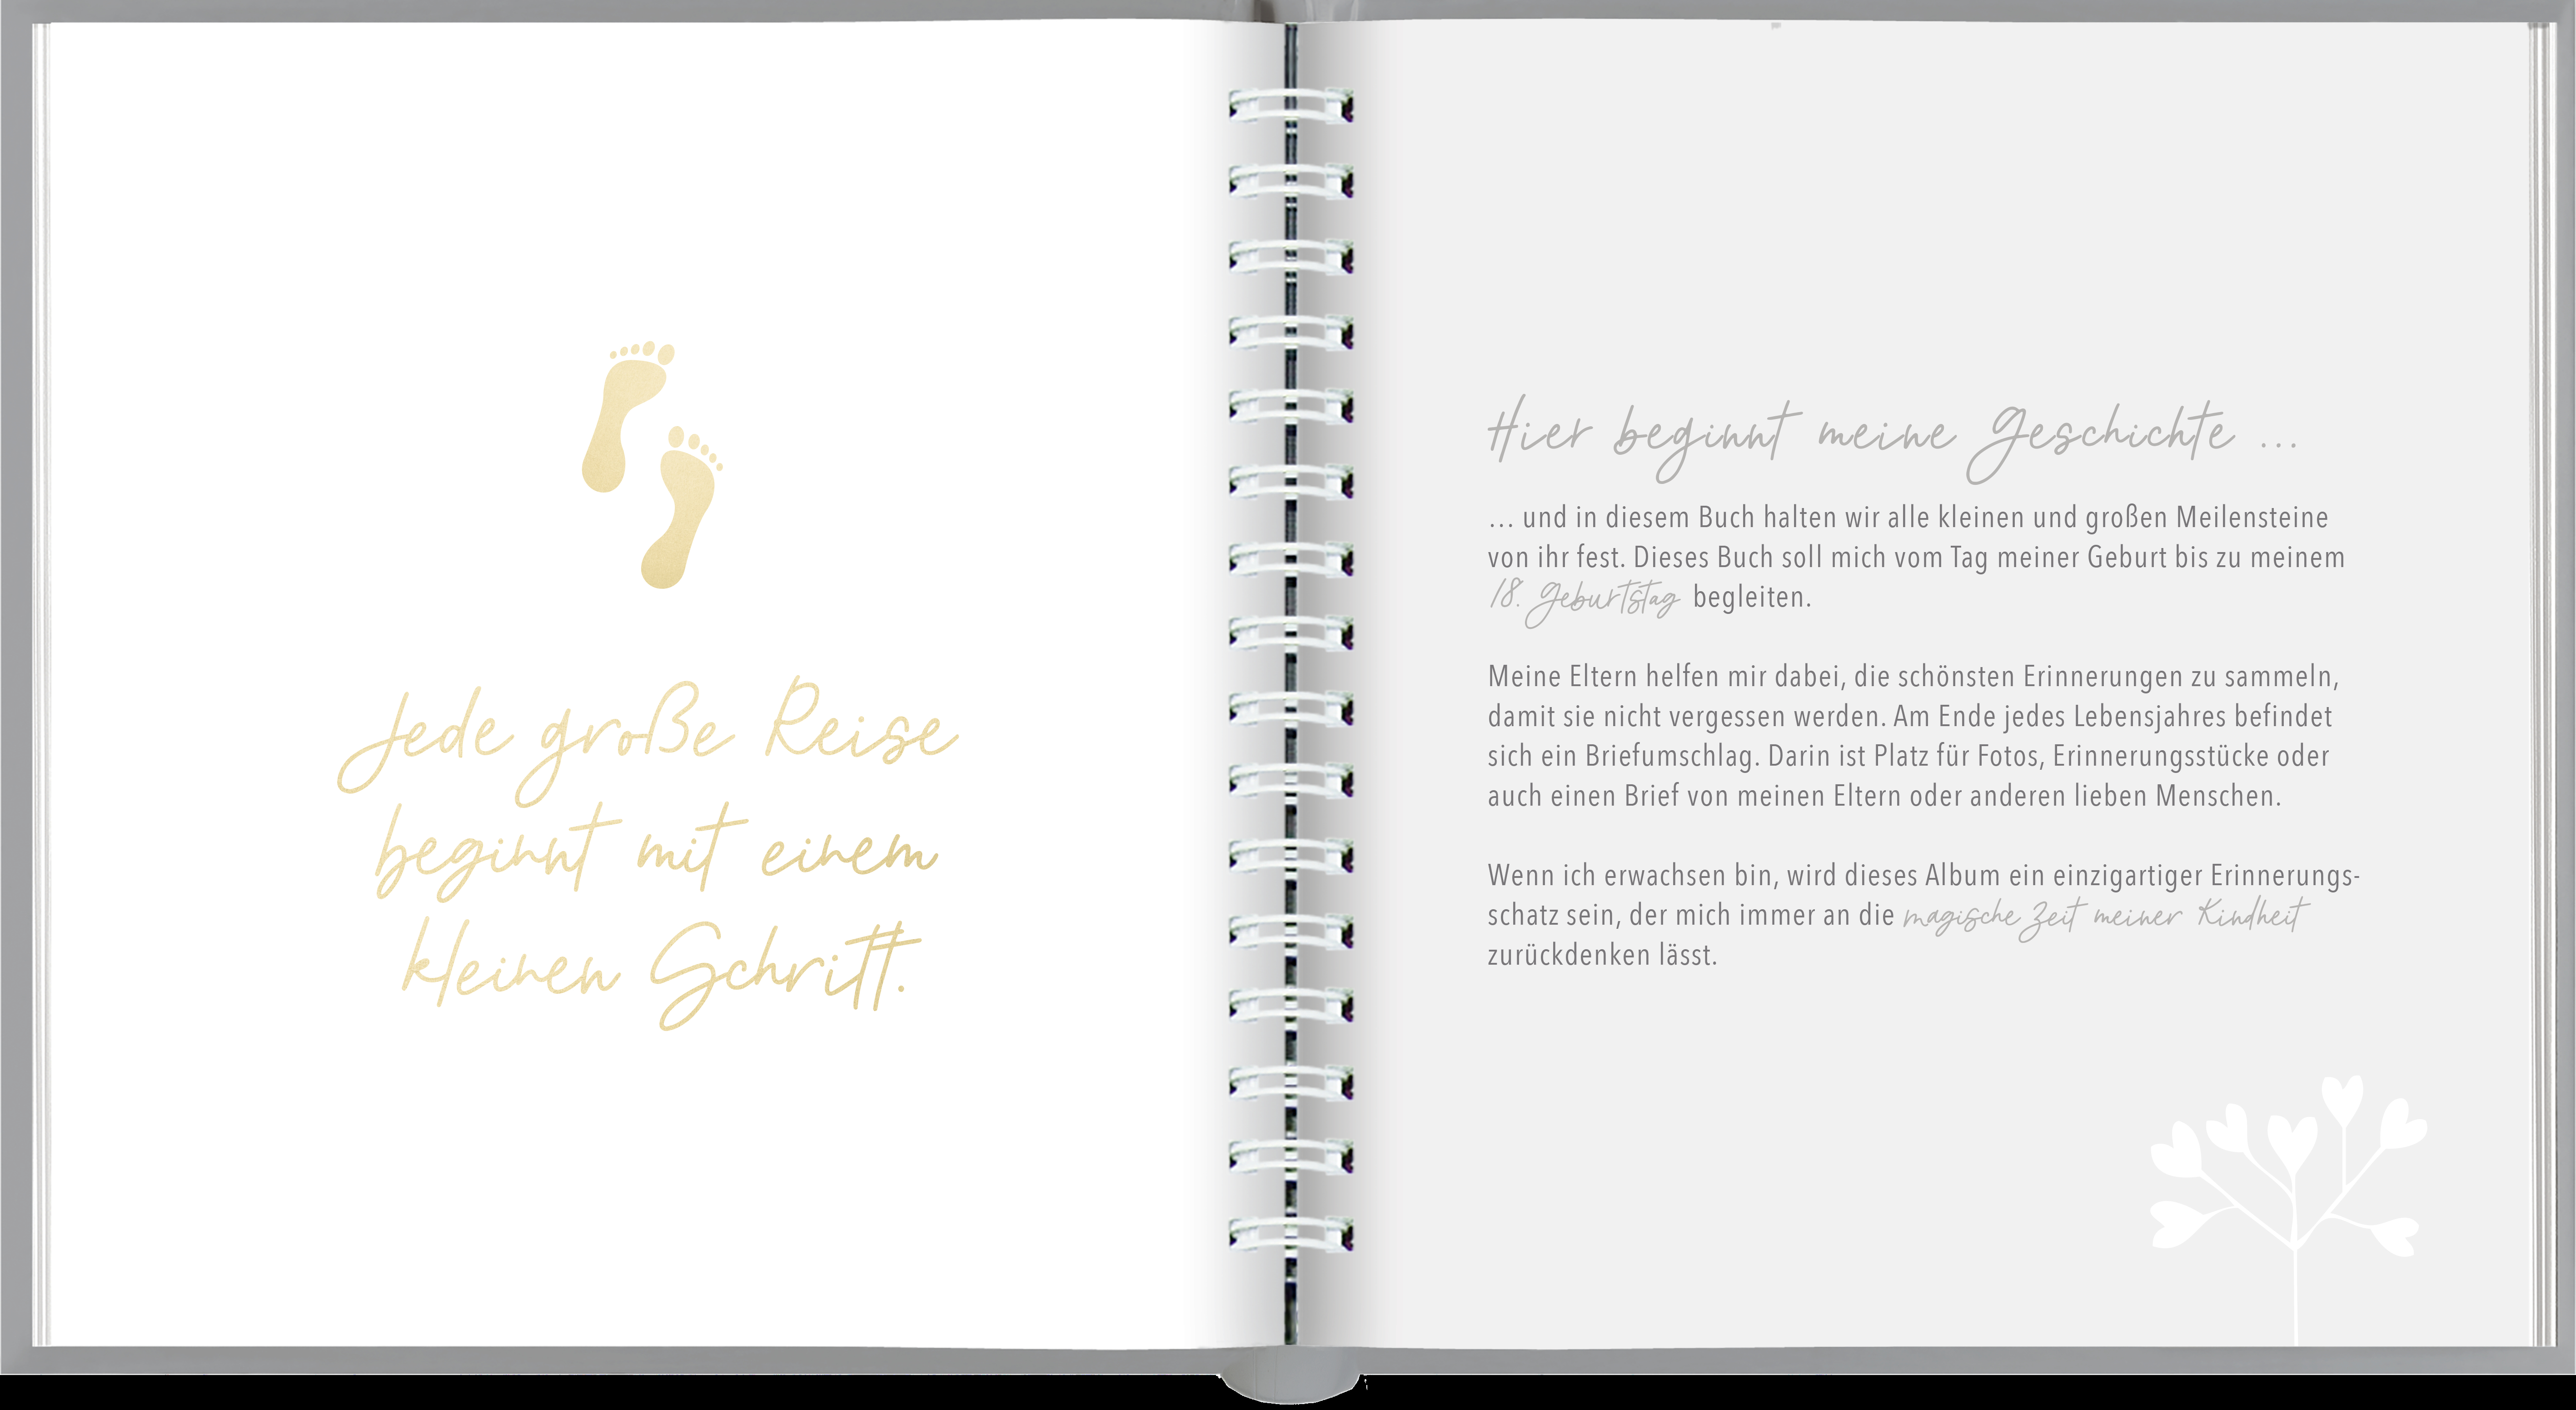 Jede große Reise
beginnt mit einem
kleinen Schritt.
Hier beginnt meine Geschichte ...
... und in diesem Buch halten wir alle kleinen und großen Meilensteine
von ihr fest. Dieses Buch soll mich vom Tag meiner Geburt bis zu meinem
18. Geburtstag begleiten.
Meine Eltern helfen mir dabei, die schönsten Erinnerungen zu sammeln,
damit sie nicht vergessen werden. Am Ende jedes Lebensjahres befindet
sich ein Briefumschlag. Darin ist Platz für Fotos, Erinnerungsstücke oder
auch einen Brief von meinen Eltern oder anderen lieben Menschen.
Wenn ich erwachsen bin, wird dieses Album ein einzigartiger Erinnerungs-
schatz sein, der mich immer an die magische Zeit meiner Kindheit
zurückdenken lässt.